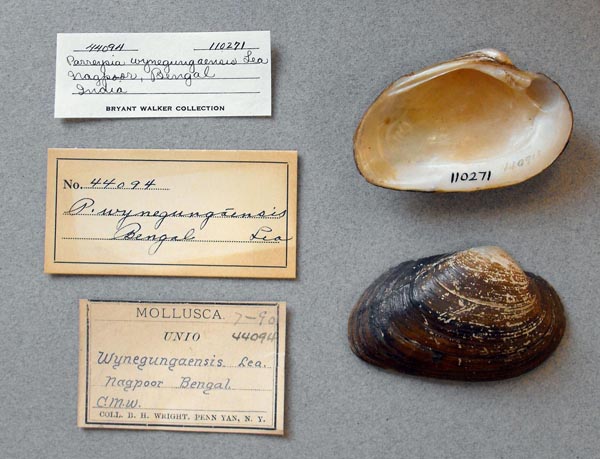 44094 110271
Parreysia wynegungaensis Lea
Nagpoor, Bengal
India
BRYANT WALKER COLLECTION
No. 44094
P. wynegungaensis
Bengal Lea
MOLLUSCA. 7-90
UNIO 44094
Wynegungaensis. Lea.
Nagpoor Bengal.
C.M.W.
COLL. B. H. WRIGHT, PENN YAN, N. Y.
110271
110271